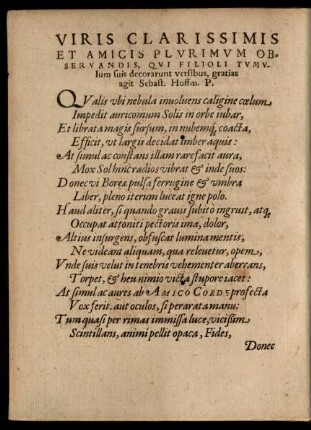 VIRIS CLARISSIMIS
ET AMICIS PLVRIMVM OB-
SERVANDIS, QVI FILIOLI TVMV-
lum suis decorarunt versibus, gratias
agit Sebast. Hoffm. P.
QValis vbi nebula inuoluens caligine cœlum
Impedit auricomum Solis in orbe iubar,
Et librata magis sursum, in nubemq, coacta,
Efficit, vt largis decidat imber aquis:
At simul ac constans illam rarefacit aura,
Mox Sol hinc radios vibrat & inde suos:
Donec vi Boreæ pulsa ferrugine & vmbra
Liber, pleno iterum luceat igne polo.
Haud aliter, si quando grauis subitò ingruit, atq,
Occupat attoniti pectoris ima, dolor,
Altius insurgens, obfuscat lumina mentis,
Ne videant aliquam, qua releuetur, opem,
Vnde suis velut in tenebris vehementer aberrans,
Torpet, & heu nimio victa stupore iacet:
At simul ac aures ab AMICO CORDE profecta
Vox ferit, aut oculos, si perarata manu:
Tum quasi per rimas immissa luce, vicissim
Scintillans, animi pellit opaca, Fides,
Donec